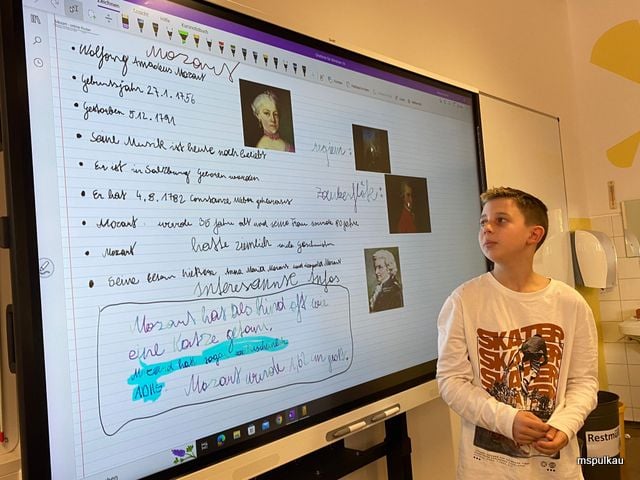 Zeichnen
Ansicht
Hilfe
Kursnotizbuch
Mozart
• Wolfgang Amadeus Mozart
• Geburtsjahr 27.1.1756
• Gestorben 5.12.1791
• Seine Musik ist heute noch beliebt
• Er ist in Salzburg geboren worden
• Er hat 4.8.1782 Constanze Weber geheiratet
• Mozart wurde 35 Jahre alt und seine Frau wurde 80 Jahre
• Mozart hatte ziemlich viele Geschwister
• Seine Eltern hießen Anna Maria Mozart und Leopold Mozart
requiem:
Zauberflöte:
interessante Infos
Mozart hat als Kind oft wie
eine Katze getan.
ADHS
Mozart wurde 1,62 m groß.
SKATER
SKATER
SKATER
SKATER
Restmüll
mspulkau